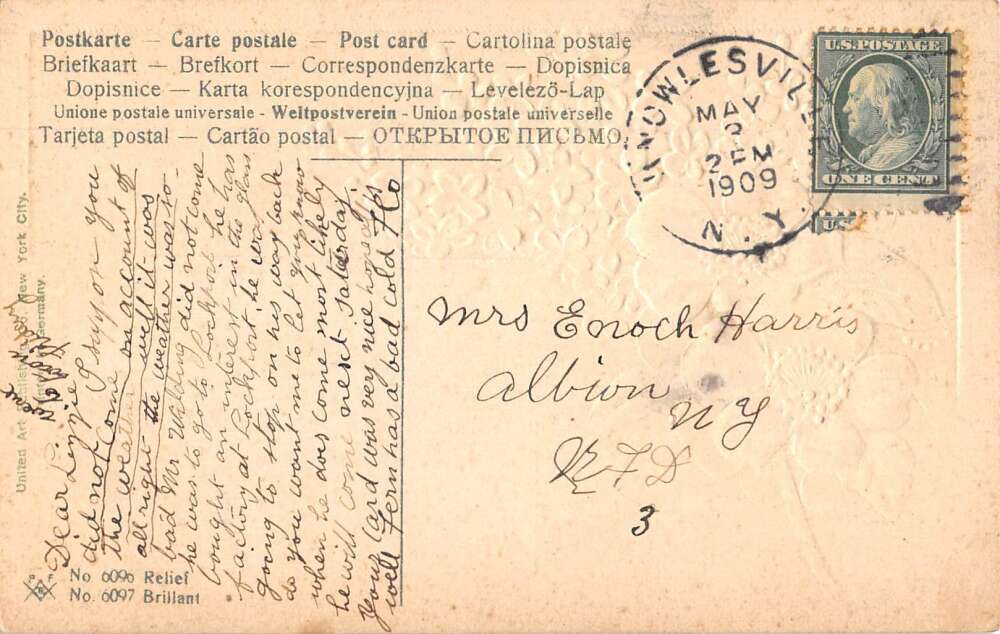 Postkarte — Carte postale — Post card — Cartolina postale
Briefkaart — Brefkort — Correspondenzkarte — Dopisnica
Dopisnice — Karta korespondencyjna — Levelező-Lap
Unione postale universale - Weltpostverein - Union postale universelle
Tarjeta postal — Cartão postal — ОТКРЫТОЕ ПИСЬМО.
KNOWLESVILLE
MAY
2 PM
1909
N.Y.
U.S. POSTAGE
ONE CENT
US
Mrs Enoch Harris
Albion
NY
RFD
3
Dear Lizzie I suppose you
did not come on account of
the weather well it was
all right the weather was so
bad Mr Walding did not come
he was to go to Lockport he has
bought an interest in the glass
factory at Lockport, he was
going to stop on his way back
do you want me to let you know
when he does come most likely
he will come next Saturday
Your Card was very nice hope its
well Fern has a bad cold Flo
United Art Publishing Co. New York City.
Germany.
No 6096 Relief
No. 6097 Brillant